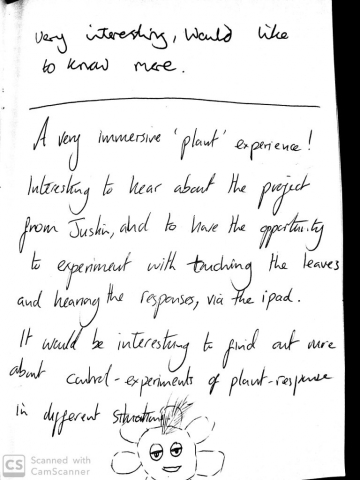 very interesting, Would like
to know more.
A very immersive 'plant' experience!
Interesting to hear about the project
from Justin, and to have the opportunity
to experiment with touching the leaves
and hearing the responses, via the ipad.
It would be interesting to find out more
about control-experiments of plant-response
in different situations
CS Scanned with
CamScanner